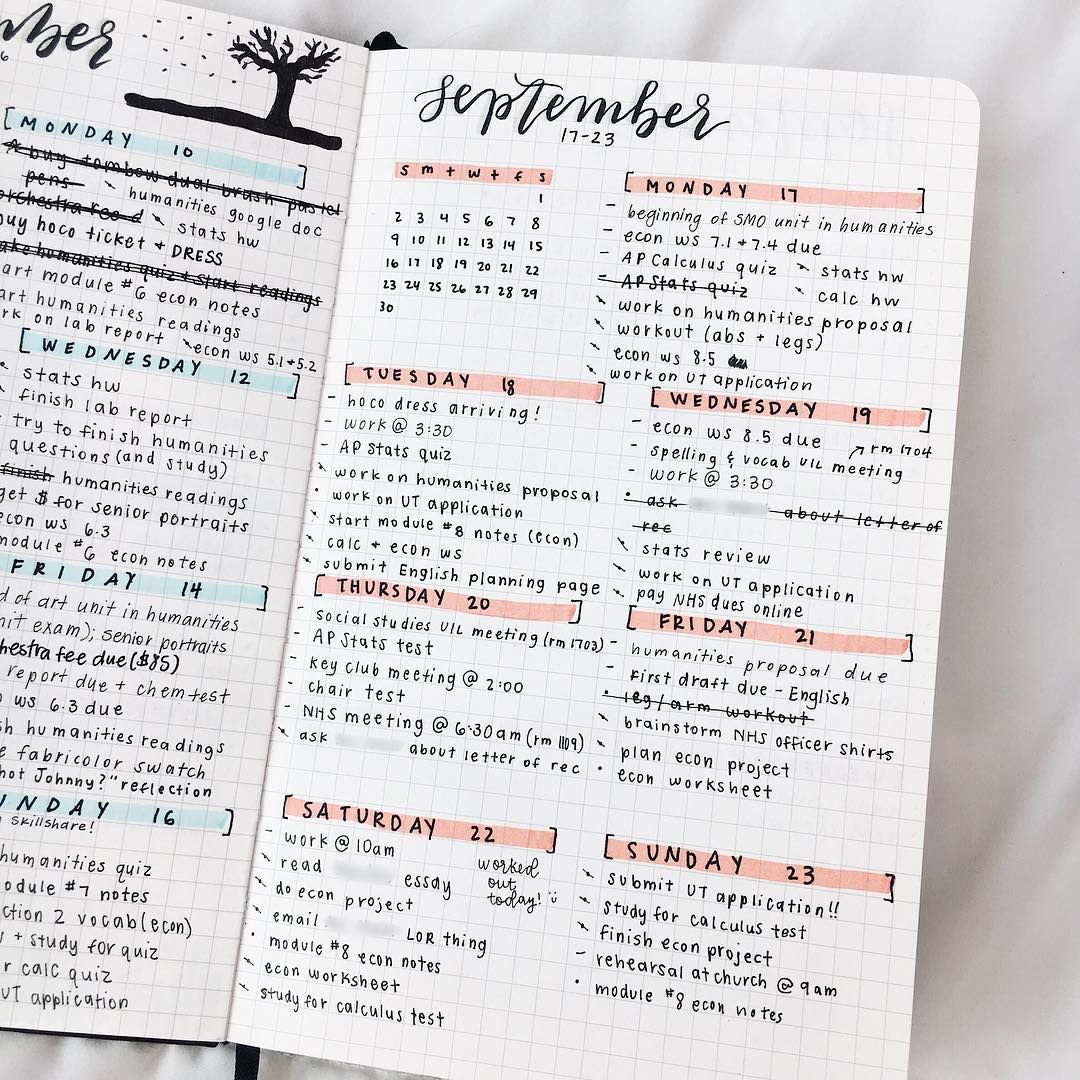 mber
6
[MONDAY 10]
buy tombow dual brush pastel
pens humanities google doc
orchestra fee stats hw
buy hoco ticket + DRESS
humanities quiz + start readings
art module #6 econ notes
art humanities readings
rk on lab report econ ws 5.1+5.2
[WEDNESDAY 12]
stats hw
finish lab report
try to finish humanities
questions (and study)
finish humanities readings
get $ for senior portraits
econ ws 6.3
module #6 econ notes
FRIDAY 14]
d of art unit in humanities
nit exam); senior portraits
hestra fee due ($85)
report due + chem test
ws 6.3 due
sh humanities readings
e fabricolor swatch
hot Johnny?" reflection
UNDAY 16]
skillshare!
humanities quiz
odule #7 notes
ction 2 vocab (econ)
+ study for quiz
r calc quiz
UT application
september
17-23
s m t w t f s
1
2 3 4 5 6 7 8
9 10 11 12 13 14 15
16 17 18 19 20 21 22
23 24 25 26 27 28 29
30
[MONDAY 17]
- beginning of SMO unit in humanities
- econ ws 7.1+7.4 due
- AP Calculus quiz stats hw
- AP Stats quiz calc hw
work on humanities proposal
workout (abs + legs)
econ ws 8.5
work on UT application
[TUESDAY 18]
- hoco dress arriving!
- work @ 3:30
- AP Stats quiz
work on humanities proposal
• work on UT application
start module #8 notes (econ)
calc + econ ws
submit English planning page
[WEDNESDAY 19]
- econ ws 8.5 due
↗ rm 1704
- spelling & vocab UIL meeting
- work @ 3:30
• ask about letter of
rec
stats review
work on UT application
pay NHS dues online
[THURSDAY 20]
- social studies UIL meeting (rm 1703)
- AP Stats test
- Key club meeting @ 2:00
- chair test
- NHS meeting @ 6:30am (rm 1109)
ask about letter of rec
[FRIDAY 21]
- humanities proposal due
- first draft due - English
• leg/arm workout
brainstorm NHS officer shirts
plan econ project
• econ worksheet
[SATURDAY 22]
- work @ 10am
read essay
do econ project
email LOR thing
• module #8 econ notes
econ worksheet
study for calculus test
worked
out
today! ü
[SUNDAY 23]
submit UT application!!
study for calculus test
finish econ project
- rehearsal at church @ 9am
• module #8 econ notes